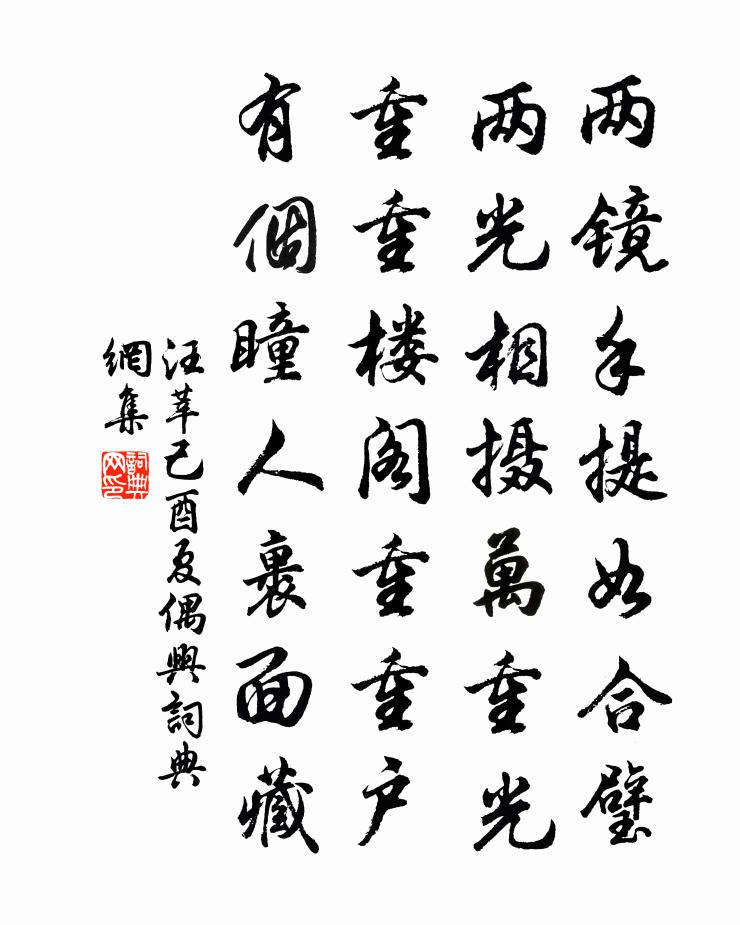 两镜手提如合璧
两光相摄萬重光
重重楼阁重重户
有個瞳人裹面藏
汪莘己酉夏偶興詞典
網集
詞典
网印